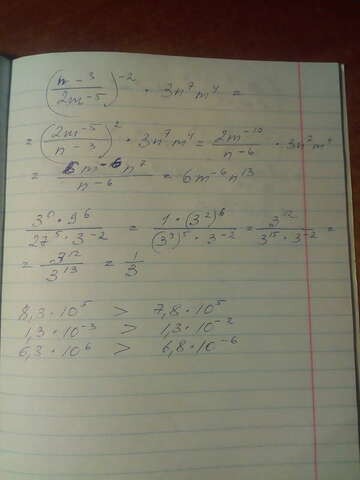 (n⁻³/2m⁻⁵)⁻² · 3n⁷m⁴ =
= (2m⁻⁵/n⁻³)² · 3n⁷m⁴ = 2m⁻¹⁰/n⁻⁶ · 3n⁷m⁴
= 6m⁻⁶n⁷/n⁻⁶ = 6m⁻⁶n¹³
3⁰ · 9⁶/27⁵ · 3⁻² = 1 · (3²)⁶/(3³)⁵ · 3⁻² = 3¹²/3¹⁵ · 3⁻² =
= 3¹²/3¹³ = 1/3
8,3 · 10⁵ > 7,8 · 10⁵
1,3 · 10⁻³ > 1,3 · 10⁻²
6,3 · 10⁶ > 6,8 · 10⁻⁶